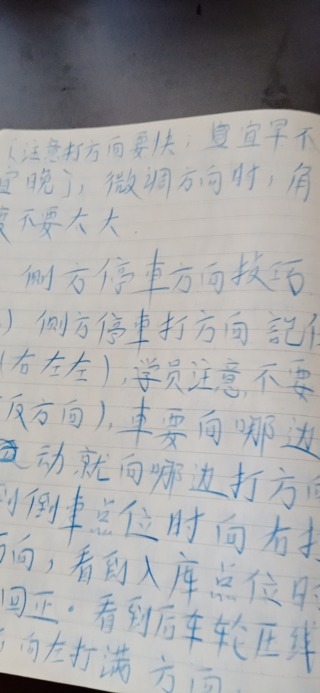 （注意打方向要快，宜早不
宜晚），微调方向时，角
度不要太大
侧方停車方向技巧
）侧方停車打方向 記住
（右左左），学员注意，不要
反方向），車要向哪边
动就向哪边打方向
到倒車点位时向右打
方向，看到入库点位时
回正。看到后车轮压线
向左打满方向